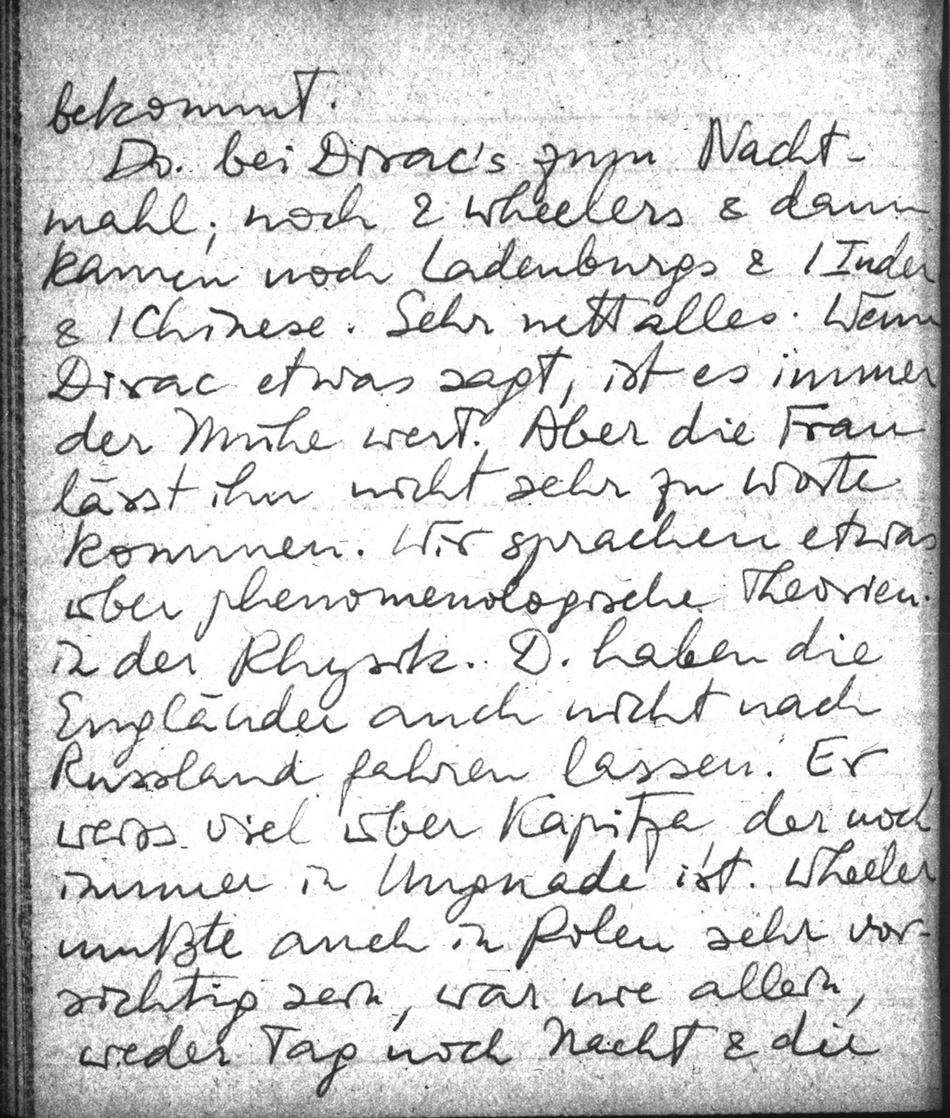 bekommt.
Do. bei Dirac's zum Nacht-
mahl; noch 2 Wheelers & dann
kamen noch Ladenburgs & 1 Inder
& 1 Chinese. Sehr nett alles. Wenn
Dirac etwas sagt, ist es immer
der Mühe wert. Aber die Frau
lässt ihn nicht sehr zu Worte
kommen. Wir sprachen etwas
über phenomenologische Theorien
in der Physik. D. haben die
Engländer auch nicht nach
Russland fahren lassen. Er
weiss viel über Kapitza, der noch
immer in Ungnade ist. Wheeler
mußte auch in Polen sehr vor-
sichtig sein, war nie allein,
weder Tag noch Nacht & die